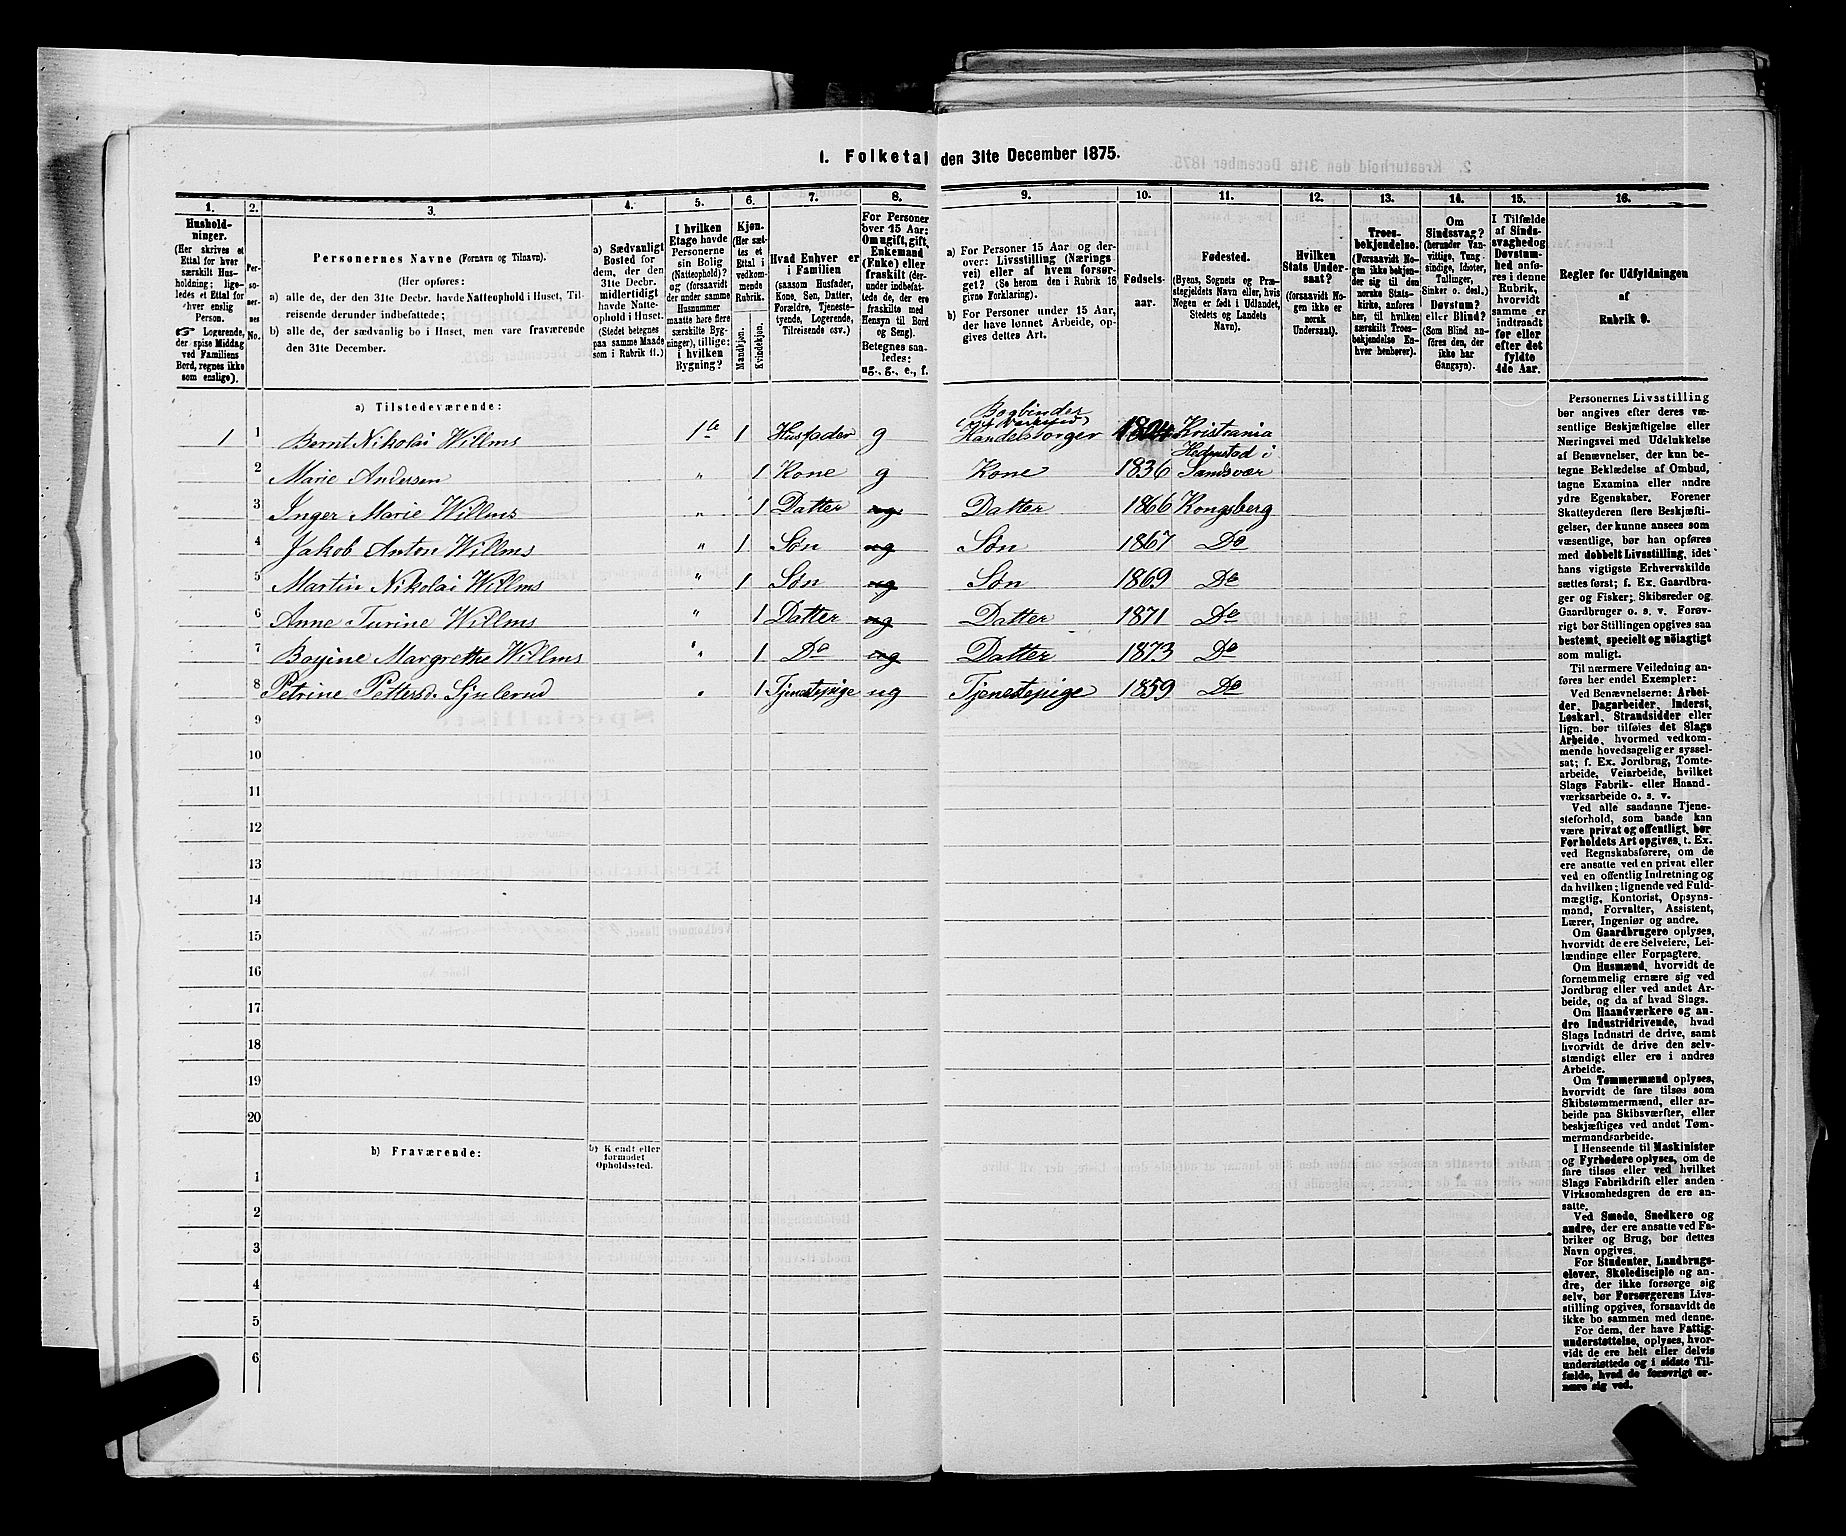 1. Folketal den 31te December 1875.
1. 2. 3. 4. 5. 6. 7. 8. 9. 10. 11. 12. 13. 14. 15. 16.
Hushold-
ninger.
(Her skrives et
Ettal for hver
særskilt Hus-
holdning; lige-
ledes et Ettal for
hver enslig
Person.
☞ Logerende,
der spise Middag
ved Familiens
Bord, regnes ikke
som enslige).
Per-
soner-
nes
No.
Personernes Navne (Fornavn og Tilnavn).
(Her opføres:
a) alle de, der den 31te Decbr. havde Natteophold i Huset, Til-
reisende derunder indbefattede;
b) alle de, der sædvanlig bo i Huset, men vare fraværende
den 31te December.
a) Sædvanligt
Bosted for
dem, der den
31te Decbr.
midlertidigt
havde Natte-
ophold i Huset.
(Stedet betegnes
paa samme Maade
som i Rubrik 11.)
I hvilken
Etage havde
Personerne
sin Bolig
(Natteophold)?
og (forsaavidt
der under samme
Husnummer
maatte høre flere
særskilte Byg-
ninger), tillige:
i hvilken
Bygning?
Kjøn.
(Her sæt-
tes et
Ettal i
vedkom-
mende
Rubrik.
Mandkjøn.
Kvindekjøn.
Hvad Enhver er
i Familien
(saasom Husfader,
Kone, Søn, Datter,
Forældre, Tjeneste-
tyende, Logerende,
Tilreisende osv.)
For Personer
over 15 Aar:
Om ugift, gift,
Enkemand
(Enke) eller
fraskilt (der-
under indbefat-
tede de, der ere
fraskilte med
Hensyn til Bord
og Seng).
Betegnes saa-
ledes:
ug., g., e., f.
a) For Personer 15 Aar og der-
over: Livsstilling (Nærings-
vei) eller af hvem forsør-
get? (Se herom den i Rubrik 16
givne Forklaring).
b) For Personer under 15 Aar,
der have lønnet Arbeide, op-
gives dettes Art.
Fødsels-
aar.
Fødested.
(Byens, Sognets og Præ-
stegjeldets Navn eller, hvis
Nogen er født i Udlandet,
Stedets og Landets
Navn).
Hvilken
Stats Under-
saat?
(forsaavidt No-
gen ikke er
norsk
Undersaat).
Troes-
bekjendelse.
(Forsaavidt No-
gen ikke bekjen-
der sig til den
norske Stats-
kirke, anføres
her, til hvilken
særskilt Troes-
bekjendelse En-
hver henhører).
Om
Sindssvag?
(herunder Van-
vittige, Tung
sindige, Idioter,
Tullinger,
Sinker o. desl.)
Døvstum?
eller Blind?
(Som Blind an-
føres den, der
ikke har
Gangsyn).
I Tilfælde
af Sinds-
svaghed og
Døvstum-
hed anfø-
res i denne
Rubrik,
hvorvidt
samme er
indtraadt
før eller
efter det
fyldte
4de Aar.
Regler for Udfyldningen
af
Rubrik 9.
a) Tilstedeværende:
1 1 Bernt Nikolai Willms 1te 1 Husfader g Bogbinder Handelsborger 1804 Kristiania
2 Marie Andersen " 1 Kone g Kone 1836 Hedenstad i Sandsvær
3 Inger Marie Willms " 1 Datter ug Datter 1866 Kongsberg
4 Jakob Anton Willms " 1 Søn ug Søn 1867 Do
5 Martin Nikolai Willms " 1 Søn ug Søn 1869 Do
6 Anne Turine Willms " 1 Datter ug Datter 1871 Do
7 Margrethe Willms " 1 Do ug Datter 1873 Do
8 Petrine Pettersd. " 1 Tjenestepige ug Tjenestepige 1859 Do
9
10
11
12
13
14
15
16
17
18
19
20
b) Fraværende:
b) Kjendt eller
formodet
Opholdssted.
1
2
3
4
5
6
Personernes Livsstilling
bør angives efter deres væ-
sentlige Beskjæftigelse eller
Næringsvei med Udelukkelse
af Benævnelser, der kun be-
tegne Beklædelse af Ombud,
tagne Examina eller andre
ydre Egenskaber. Forener
Skatteyderen flere Beskjæfti-
gelser, der kunne ansees som
væsentlige, bør han opføres
med dobbelt Livsstilling, idet
hans vigtigste Erhvervskilde
sættes først; f. Ex. Gaardbru-
ger og Fisker; Skibsreder og
Gaardbruger o. s. v. Forøv-
rigt bør Stillingen opgives saa
bestemt, specielt og nöiagtigt
som muligt.
Til nærmere Veiledning an-
føres her endel Exempler:
Ved Benævnelserne: Arbei-
der, Dagarbeider, Inderst,
Løskarl, Strandsidder eller
lign. bør tilføies det Slags
Arbeide, hvormed vedkom-
mende hovedsagelig er syssel-
sat; f. Ex. Jordbrug, Tomte-
arbeide, Veiarbeide, hvilket
Slags Fabrik- eller Haand-
værksarbeide o. s. v.
Ved alle saadanne Tjene-
steforhold, som baade kan
være privat og offentligt, bør
Forholdets Art opgives, t. Ex.
ved Regnskabsførere, om de
ere ansatte ved en privat eller
ved en offentlig Indretning og
da hvilken; lignende ved Fuld-
mægtig, Kontorist, Opsyns-
mand, Forvalter, Assistent,
Lærer, Ingeniør og andre.
Om Gaardbrugere oplyses,
hvorvidt de ere Selveiere, Lei-
lændinge eller Forpagtere.
Om Husmænd, hvorvidt de
fornemmelig ernære sig ved
Jordbrug eller ved andet Ar-
beide, og da af hvad Slags.
Om Haandværkere og an-
dre Industridrivende, hvad
Slags Industri de drive, samt
hvorvidt de drive den selv-
stændigt eller ere i andres
Arbeide.
Om Tømmermænd oplyses,
hvorvidt de fare tilsøs som
Skibstømmermænd, eller ar-
beide paa Skibsværfter, eller
beskjæftiges ved andet Tøm-
mermandsarbeide.
I Henseende til Maskinister
og Fyrbødere oplyses, om de
fare tilsøs eller ved hvilket
Slags Fabrikdrift eller anden
Virksomhedsgren de ere an-
satte.
Ved Smede, Snedkere og
andre, der ere ansatte ved Fa-
briker og Brug, bør dettes
Navn opgives.
For Studenter, Landbrugs-
elever, Skoledisciple og an-
dre, der ikke forsørge sig
selv, bør Forsørgerens Livs-
stilling opgives, forsaavidt de
ikke bo sammen med denne.
For dem, der have Fattig-
understøttelse, oplyses, hvor-
vidt de ere helt eller delvis
understøttede og i sidste Til-
fælde, hvad de forøvrigt er-
nære sig ved.